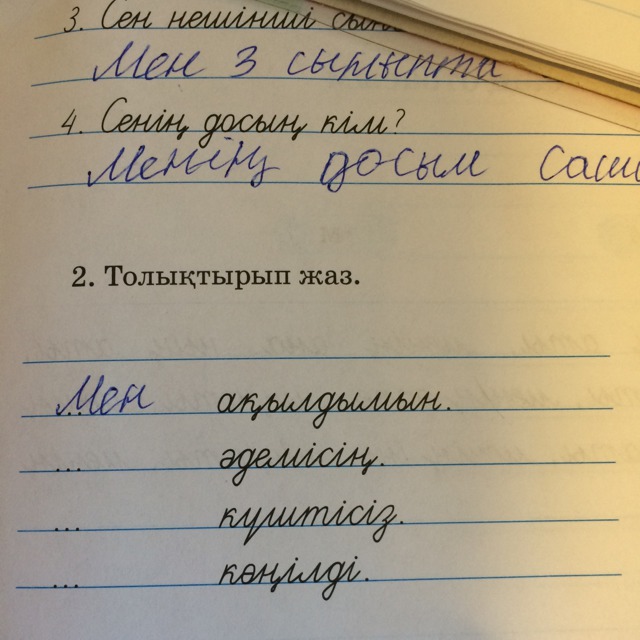 3. Сен нешінші
Мен 3 сыныпта
4. Сенің досың кім?
Менің досым Саш
2. Толықтырып жаз.
Мен ... ақылдымын.
... әдемісің.
... күштісіз.
... көңілді.